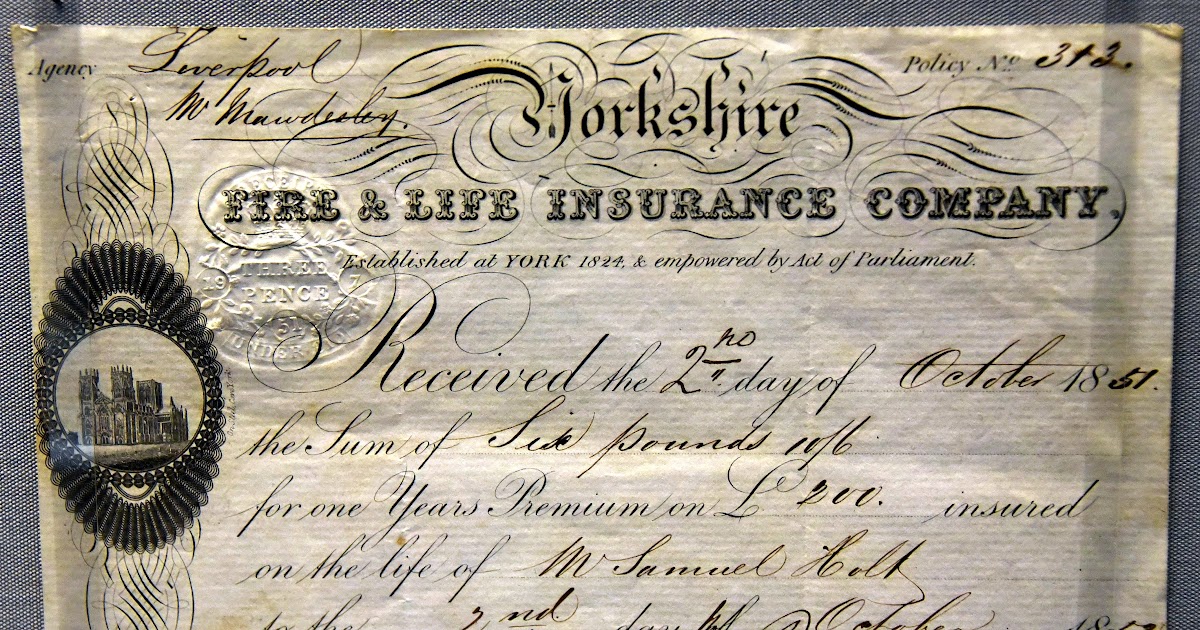 Agency Liverpool
Mr Mawdesley.
Policy No 343.
Yorkshire
FIRE & LIFE INSURANCE COMPANY.
Established at YORK 1824, & empowered by Act of Parliament.
THREE
19 7
PENCE
51
UNDER
Received the 2nd day of October 1851.
the Sum of Six pounds 10/6
for one Years Premium on £ 200. insured
on the life of Mr Samuel Holt
to the 2nd day of October 1852